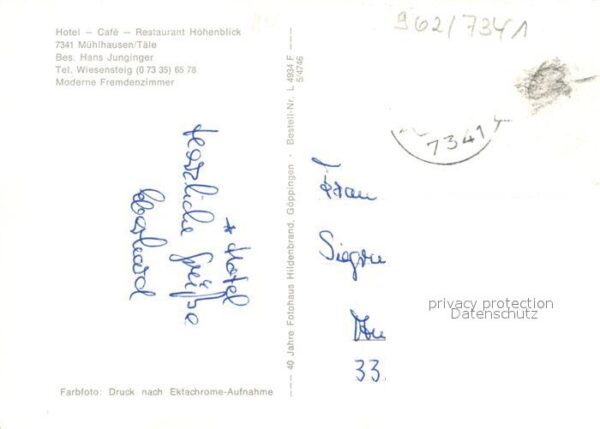 Hotel – Café – Restaurant Höhenblick
7341 Mühlhausen/Täle
Bes. Hans Junginger
Tel. Wiesensteig (0 73 35) 65 78
Moderne Fremdenzimmer
* Hotel
Herzliche Grüße
Eberhard
Farbfoto: Druck nach Ektachrome-Aufnahme
40 Jahre Fotohaus Hildenbrand, Göppingen · Bestell-Nr. L 4934 F
5/4746
962/7341
7341
Frau
33.
privacy protection
Datenschutz